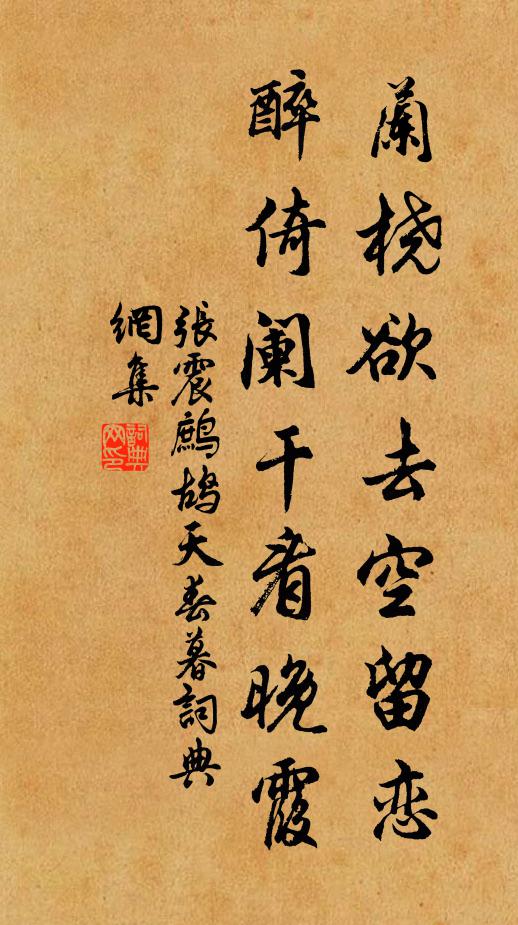 蘭橈欲去空留恋
醉倚阑干看晚霞
張震鷓鴣天春暮詞典
網集
詞典
网印